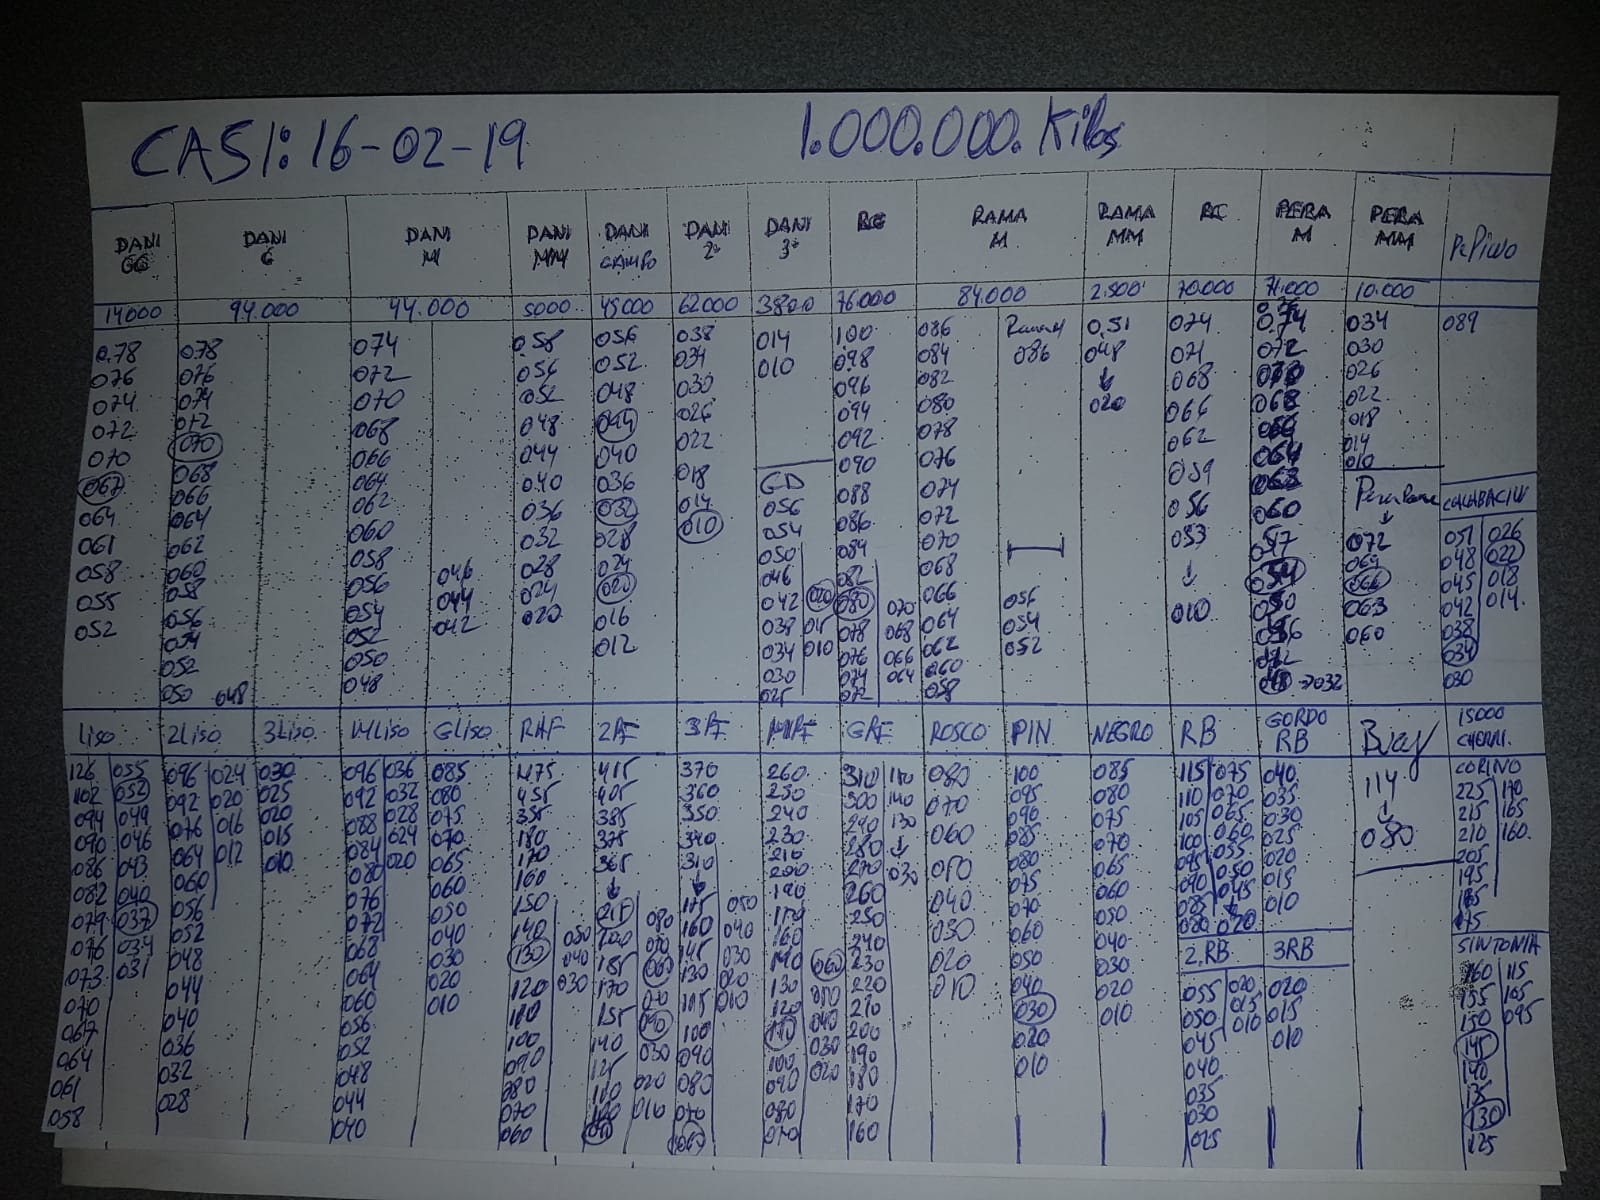 CASI: 16-02-19 1.000.000. Kilos
DANI GG DANI G DANI M DANI MM DANI CAMPO DANI 2ª DANI 3ª RG RAMA M RAMA MM RC PERA M PERA MM PEPINO
14000 94.000 44.000 5000 45000 62000 3800 76.000 84.000 2.500 70.000 74.000 10.000
078 078 074 058 056 038 014 100 086 Rama M 0.51 074 074 034 089
076 076 072 056 052 034 010 098 084 086 048 071 072 030
074 074 070 052 048 030 096 082 ↓ 068 070 026
072 072 068 048 044 026 094 080 020 066 068 022
070 070 066 044 040 022 092 078 062 066 018
067 068 064 040 036 018 090 076 059 064 014
064 066 062 036 032 014 GD 088 074 056 010
061 064 060 032 028 010 056 086 072 053 060 Pera Rama CALABACIN
058 062 058 046 028 024 054 084 070 ↓ 057 ↓ 051 026
055 060 056 044 024 020 050 082 068 010 054 072 048 022
052 058 054 042 020 016 046 080 066 056 050 069 045 018
056 052 012 042 020 078 070 064 054 066 042 014
054 050 038 015 076 068 062 052 063 038
052 048 034 010 074 066 060 060 034
050 048 030 072 064 058 048 → 032 030
025
Liso 2Liso 3Liso MLiso GLiso RAF 2AF 3AF MRF GRF ROSCO PIN NEGRO RB GORDO RB 15000 CHERRI.
126 055 096 024 030 096 036 085 475 415 370 260 310 080 100 085 115 075 040 114 CORINO
102 052 092 020 025 092 032 080 455 405 360 250 300 140 070 095 080 110 070 035 ↓ 225 170
094 049 076 016 020 088 028 075 385 350 240 290 130 060 090 075 105 065 030 080 215 165
090 046 064 012 015 084 024 070 180 375 340 230 280 ↓ 050 085 070 100 060 025 210 160.
086 043 060 010 080 020 065 170 365 310 210 270 030 040 080 065 095 055 020 205
082 040 056 076 060 160 ↓ ↓ 200 260 030 075 060 090 050 015 195
079 037 052 072 050 150 215 175 050 190 250 020 070 050 085 045 010 185
076 034 048 068 040 140 050 200 080 160 040 170 240 010 060 040 080 020 175
073 031 044 064 030 130 040 185 070 145 030 160 230 050 030 2.RB 3RB SINTONIA
070 040 060 020 120 030 170 060 130 020 140 060 220 040 020 055 020 020 160 115
067 036 056 010 110 155 115 010 130 050 210 030 010 050 015 015 155 105
064 032 052 100 140 040 100 120 040 200 020 045 010 010 150 095
061 028 048 090 125 030 090 110 030 190 010 040 145
058 044 080 110 020 080 100 020 180 035 140
040 070 100 010 070 090 170 030 135
060 090 060 080 160 025 130
070 125